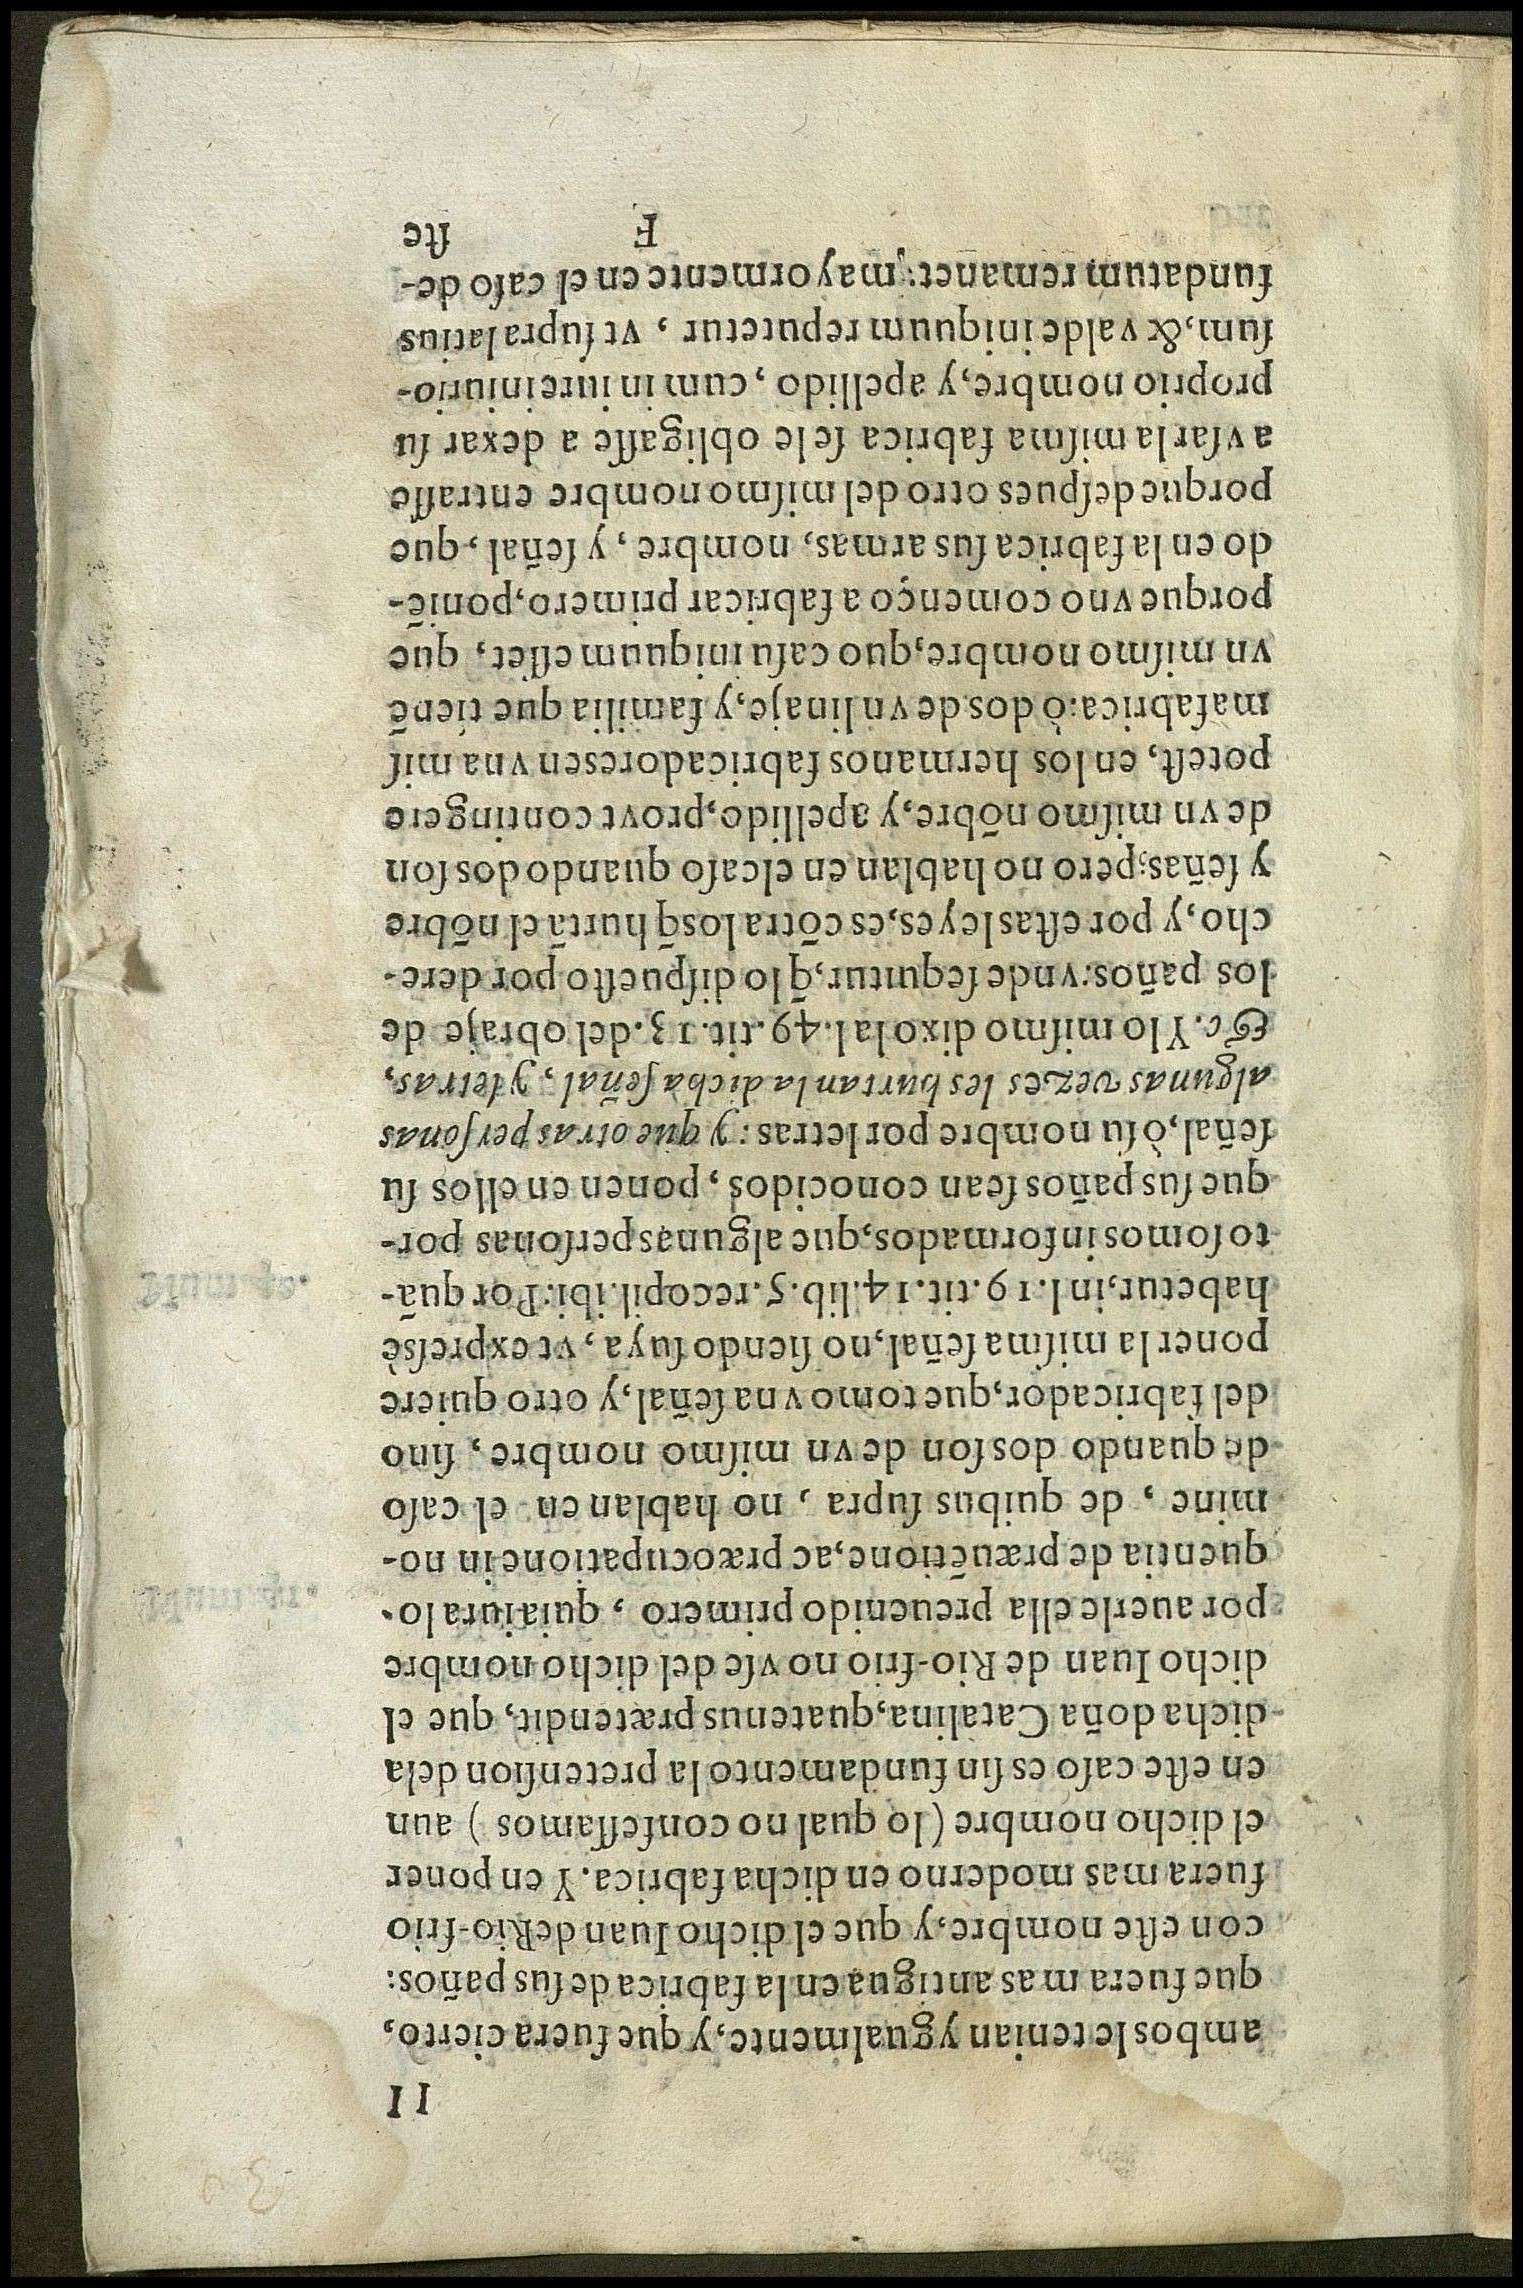 11
ambos le tenian ygualmente, y que fuera cierto,
que fuera mas antigua en la fabrica de ſus paños:
con eſte nombre, y que el dicho Iuan de Rio-frio
fuera mas moderno en dicha fabrica. Y en poner
el dicho nombre (lo qual no confeſſamos) aun
en eſte caſo es ſin fundamento la pretenſion dela
dicha doña Catalina, quatenus prætendit, que el
dicho Iuan de Rio-frio no vſe del dicho nombre
por auerle ella preuenido primero, quia iura lo-
quentia de præuẽtione, ac præocupatione in no-
mine, de quibus ſupra, no hablan en el caſo
de quando dos ſon de vn miſmo nombre, ſino
del fabricador, que tomo vna ſeñal, y otro quiere
poner la miſma ſeñal, no ſiendo ſuya, vt expreſsè
habetur, in l. 19. tit. 14. lib. 5. recopil. ibi: Por quã-
to ſomos informados, que algunas perſonas por-
que ſus paños ſean conocidos, ponen en ellos ſu
ſeñal, ò ſu nombre por letras: y que otras perſonas
algunas vezes les hurtan la dicha ſeñal, y letras,
&c. Y lo miſmo dixo la l. 49. tit. 13. del obraje de
los paños: vnde ſequitur, q̃ lo diſpueſto por dere-
cho, y por eſtas leyes, es cõtra los q̃ hurtã el nõbre
y ſeñas; pero no hablan en el caſo quando dos ſon
de vn miſmo nõbre, y apellido, provt contingere
poteſt, en los hermanos fabricadores en vna miſ
ma fabrica: ò dos de vn linaje, y familia que tienẽ
vn miſmo nombre, quo caſu iniquum eſſet, que
porque vno començo a fabricar primero, poniẽ-
do en la fabrica ſus armas, nombre, y ſeñal, que
porque deſpues otro del miſmo nombre entraſſe
a vſar la miſma fabrica ſe le obligaſſe a dexar ſu
proprio nombre, y apellido, cum in iure iniurio-
ſum, & valde iniquum reputetur, vt ſupra latius
fundatum remanet; mayormente en el caſo de-
F ſte